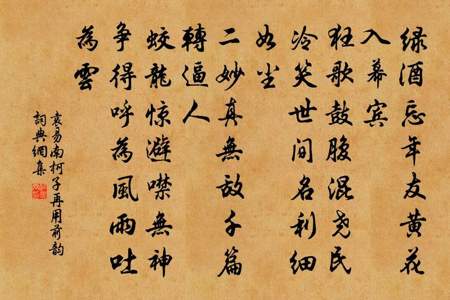 绿酒忘年友黄花
入幕賓
狂歌鼓腹混尧民
冷笑世间名利细
如尘
二妙真無敌千篇
轉逼人
蛟龍惊避噤無神
争得呼為風雨吐
為雲
袁易南柯子再用前韵
詞典網集